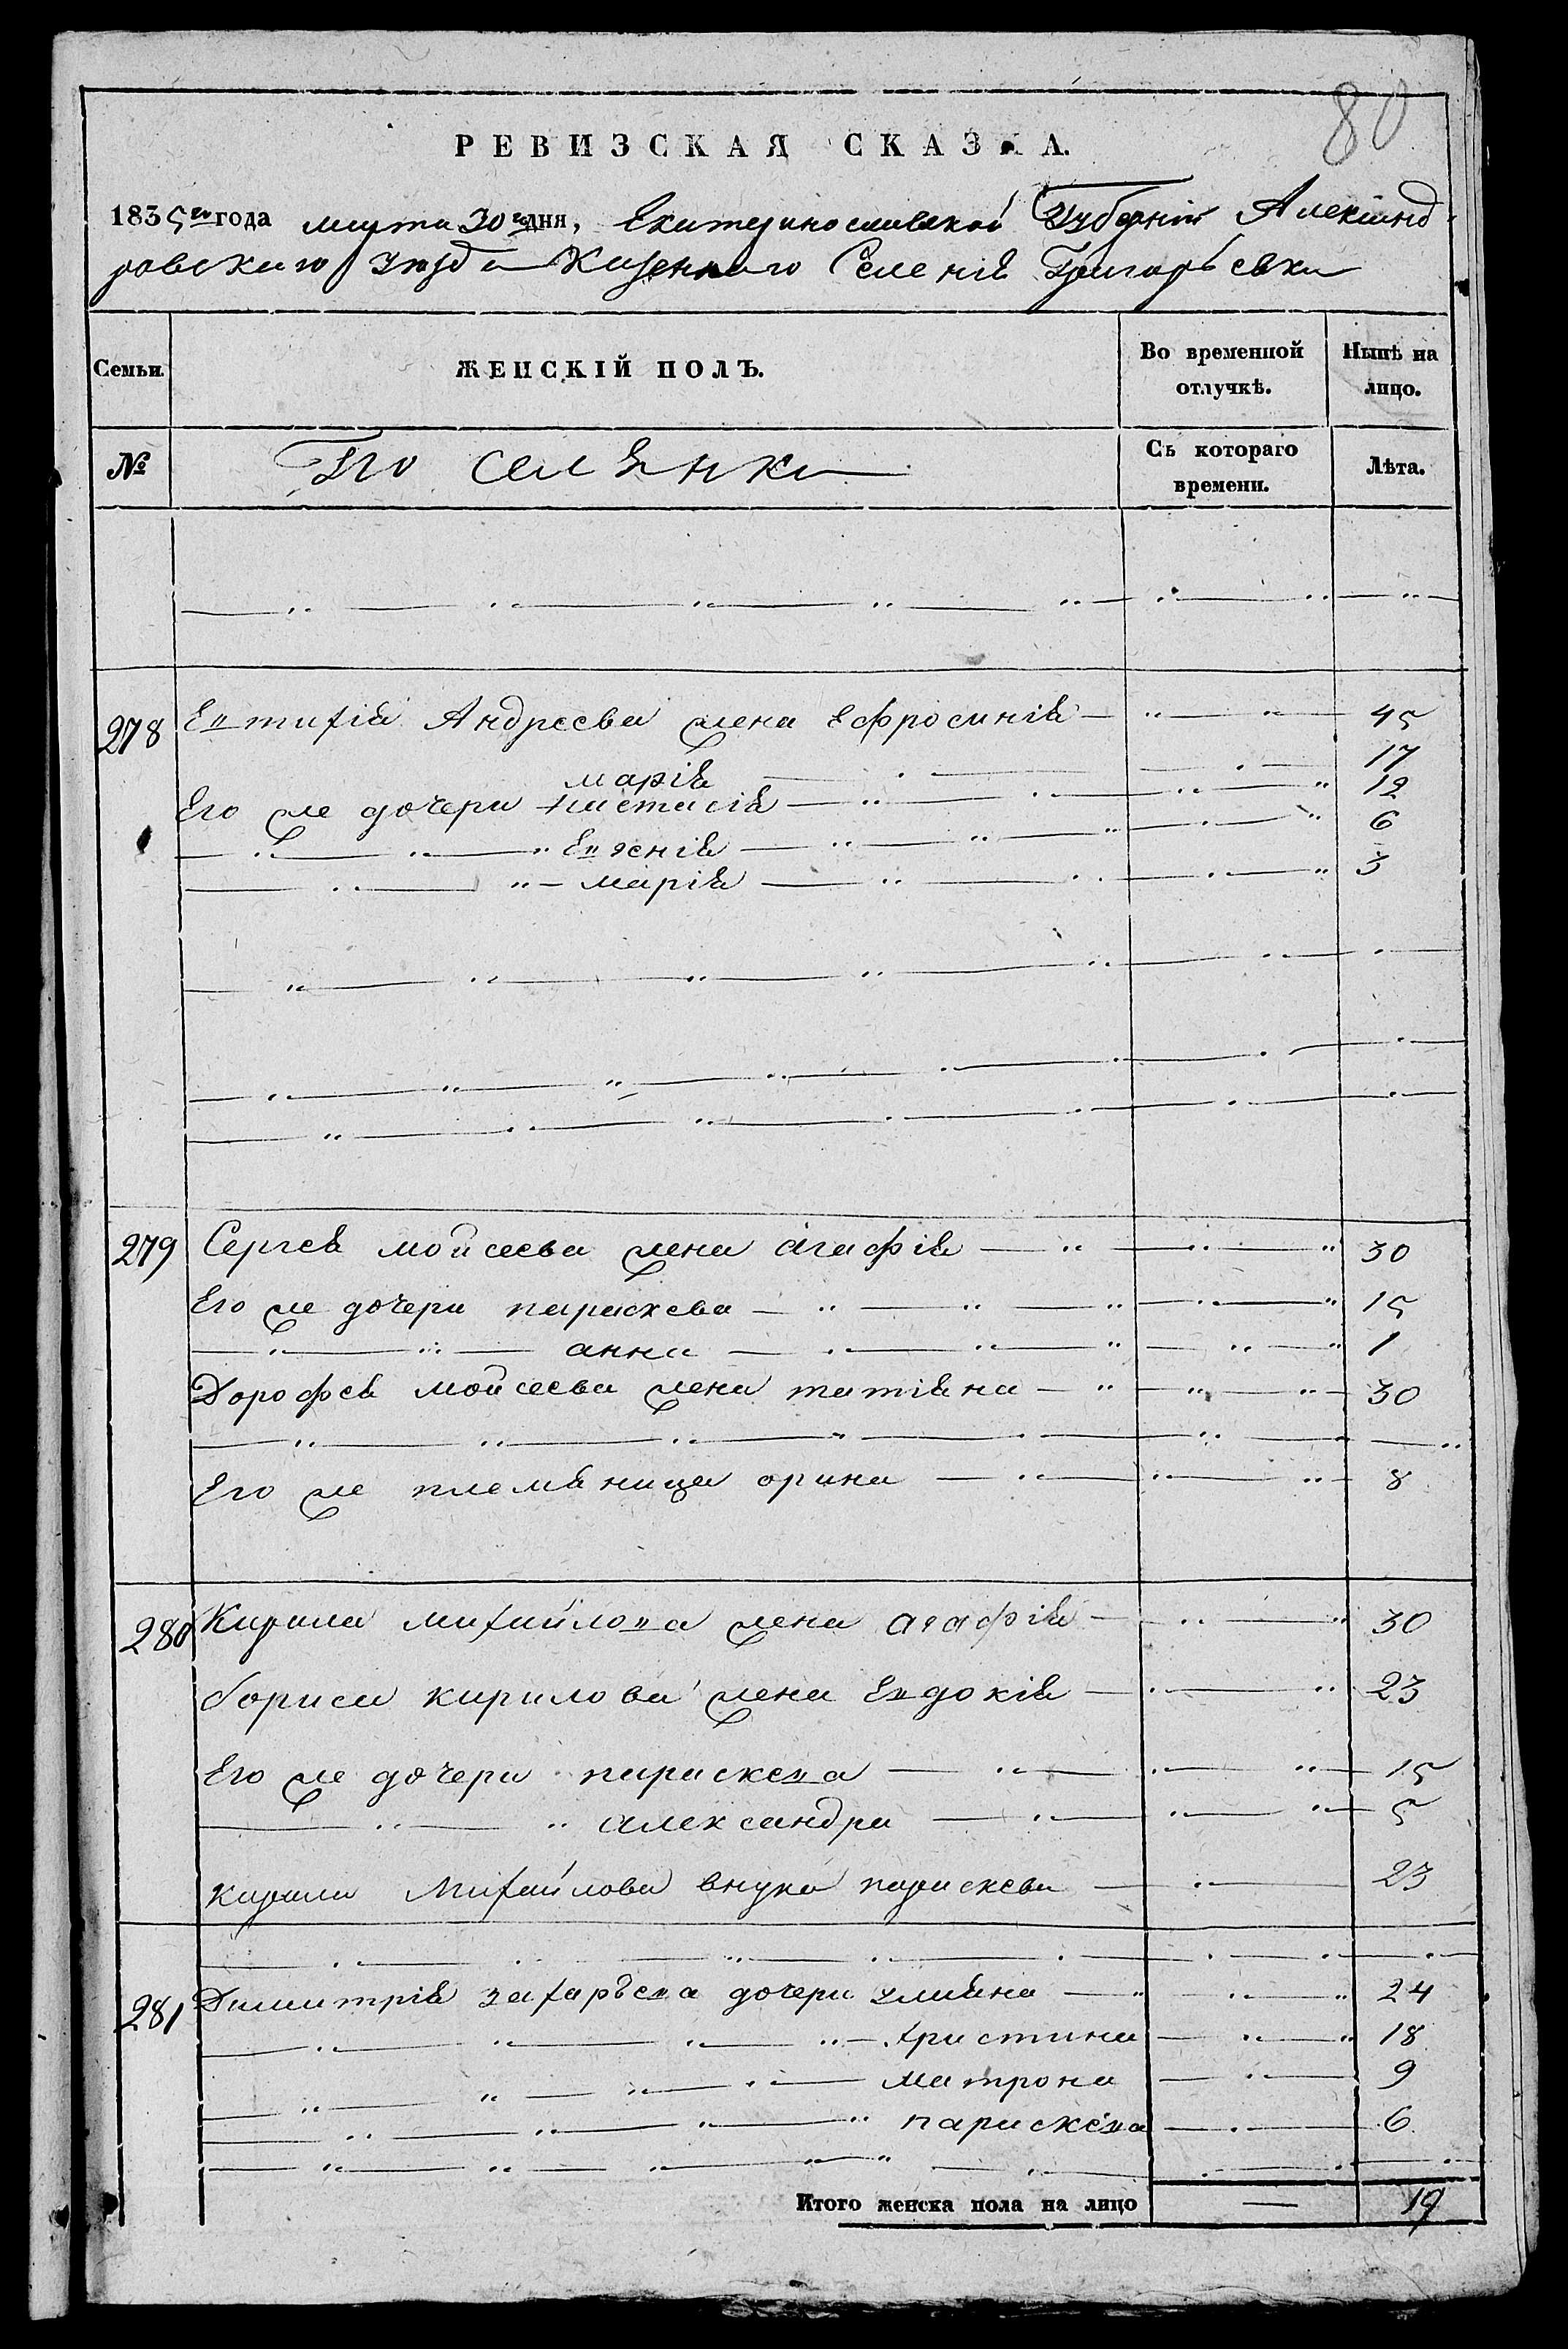 80
РЕВИЗСКАЯ СКАЗКА.
1835го года марта 30го дня, Екатеринославской Губерніи Александ-
ровскаго уѣзда Казеннаго Селенія Григорьевки
Семьи. ЖЕНСКІЙ ПОЛЪ. Во временной отлучкѣ. Нынѣ на лицо.
№ Поселянки Съ котораго времени. Лѣта.
278 Евтихія Андреева жена Ефросинія 45
марія 17
Его же дочери настасія 12
Евгенія 6
марія 3
279 Сергея мойсеева жена агафія 30
Его же дочери параскева 15
анна 1
Дорофея мойсеева жена татіяна 30
Его же племяница орина 8
280 Кирила михайлова жена агафія 30
бориса кирилова жена Евдокія 23
Его же дочери параскева 15
александра 5
кирила Михайлова внука параскева 23
281 Димитрія захарьева дочери улияна 24
христина 18
матрона 9
параскева 6
Итого женска пола на лицо — 19